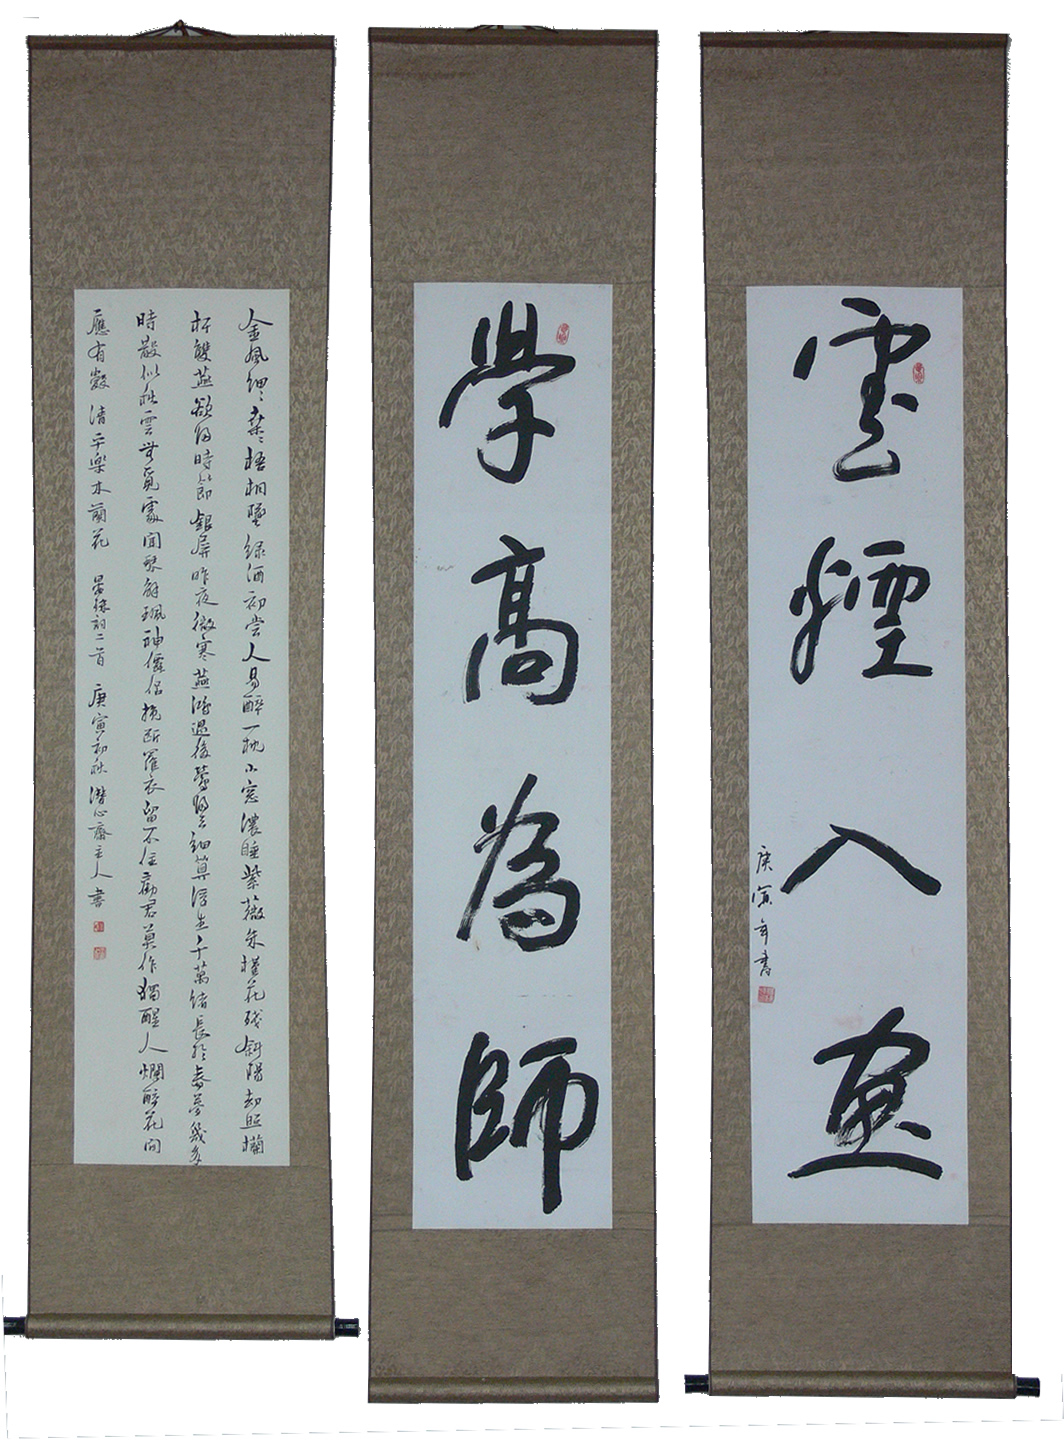 雲煙入畫
庚寅年書
學高為師
金風細〻葉〻梧桐墜綠酒初嘗人易醉一枕小窗濃睡紫薇朱槿花殘斜陽却照欄
杆雙燕欲歸時節銀屏昨夜微寒燕鴻過後鶯歸去細算浮生千萬緒長於春夢幾多
時散似秋雲無覓處聞琴解珮神僊侶挽斷羅衣留不住勸君莫作獨醒人爛醉花間
應有數 清平樂木蘭花 晏殊詞二首 庚寅初秋潛心齋主人書